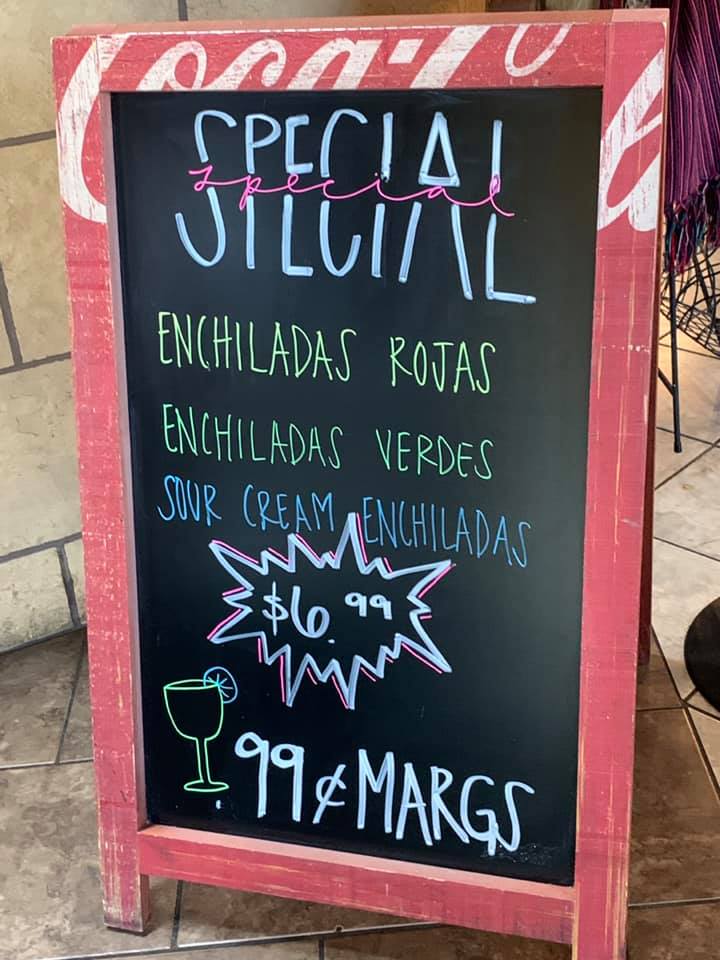 Coca-Co
SPECIAL
special
ENCHILADAS ROJAS
ENCHILADAS VERDES
SOUR CREAM ENCHILADAS
$6.99
99¢ MARGS